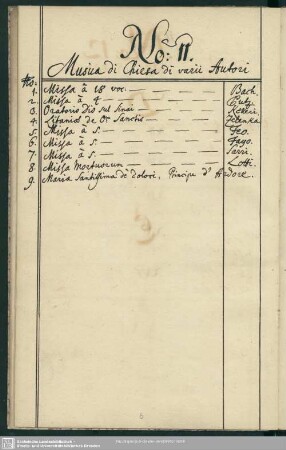 No: II.
Musica di Chiesa di varii Autori
No:
1. Missa à 18 voc. Bach.
2. Missa à 4
3. Oratorio Dio sul Sinai
4. Litaniæ de Oō Sanctis Zelenka
5. Missa à 5. Feo.
6. Missa à 5. Fago.
7. Missa à 5. Sarri.
8 Missa Mortuorum Lotti.
9. Maria Santissima de dolori, Principe d'Ardore.